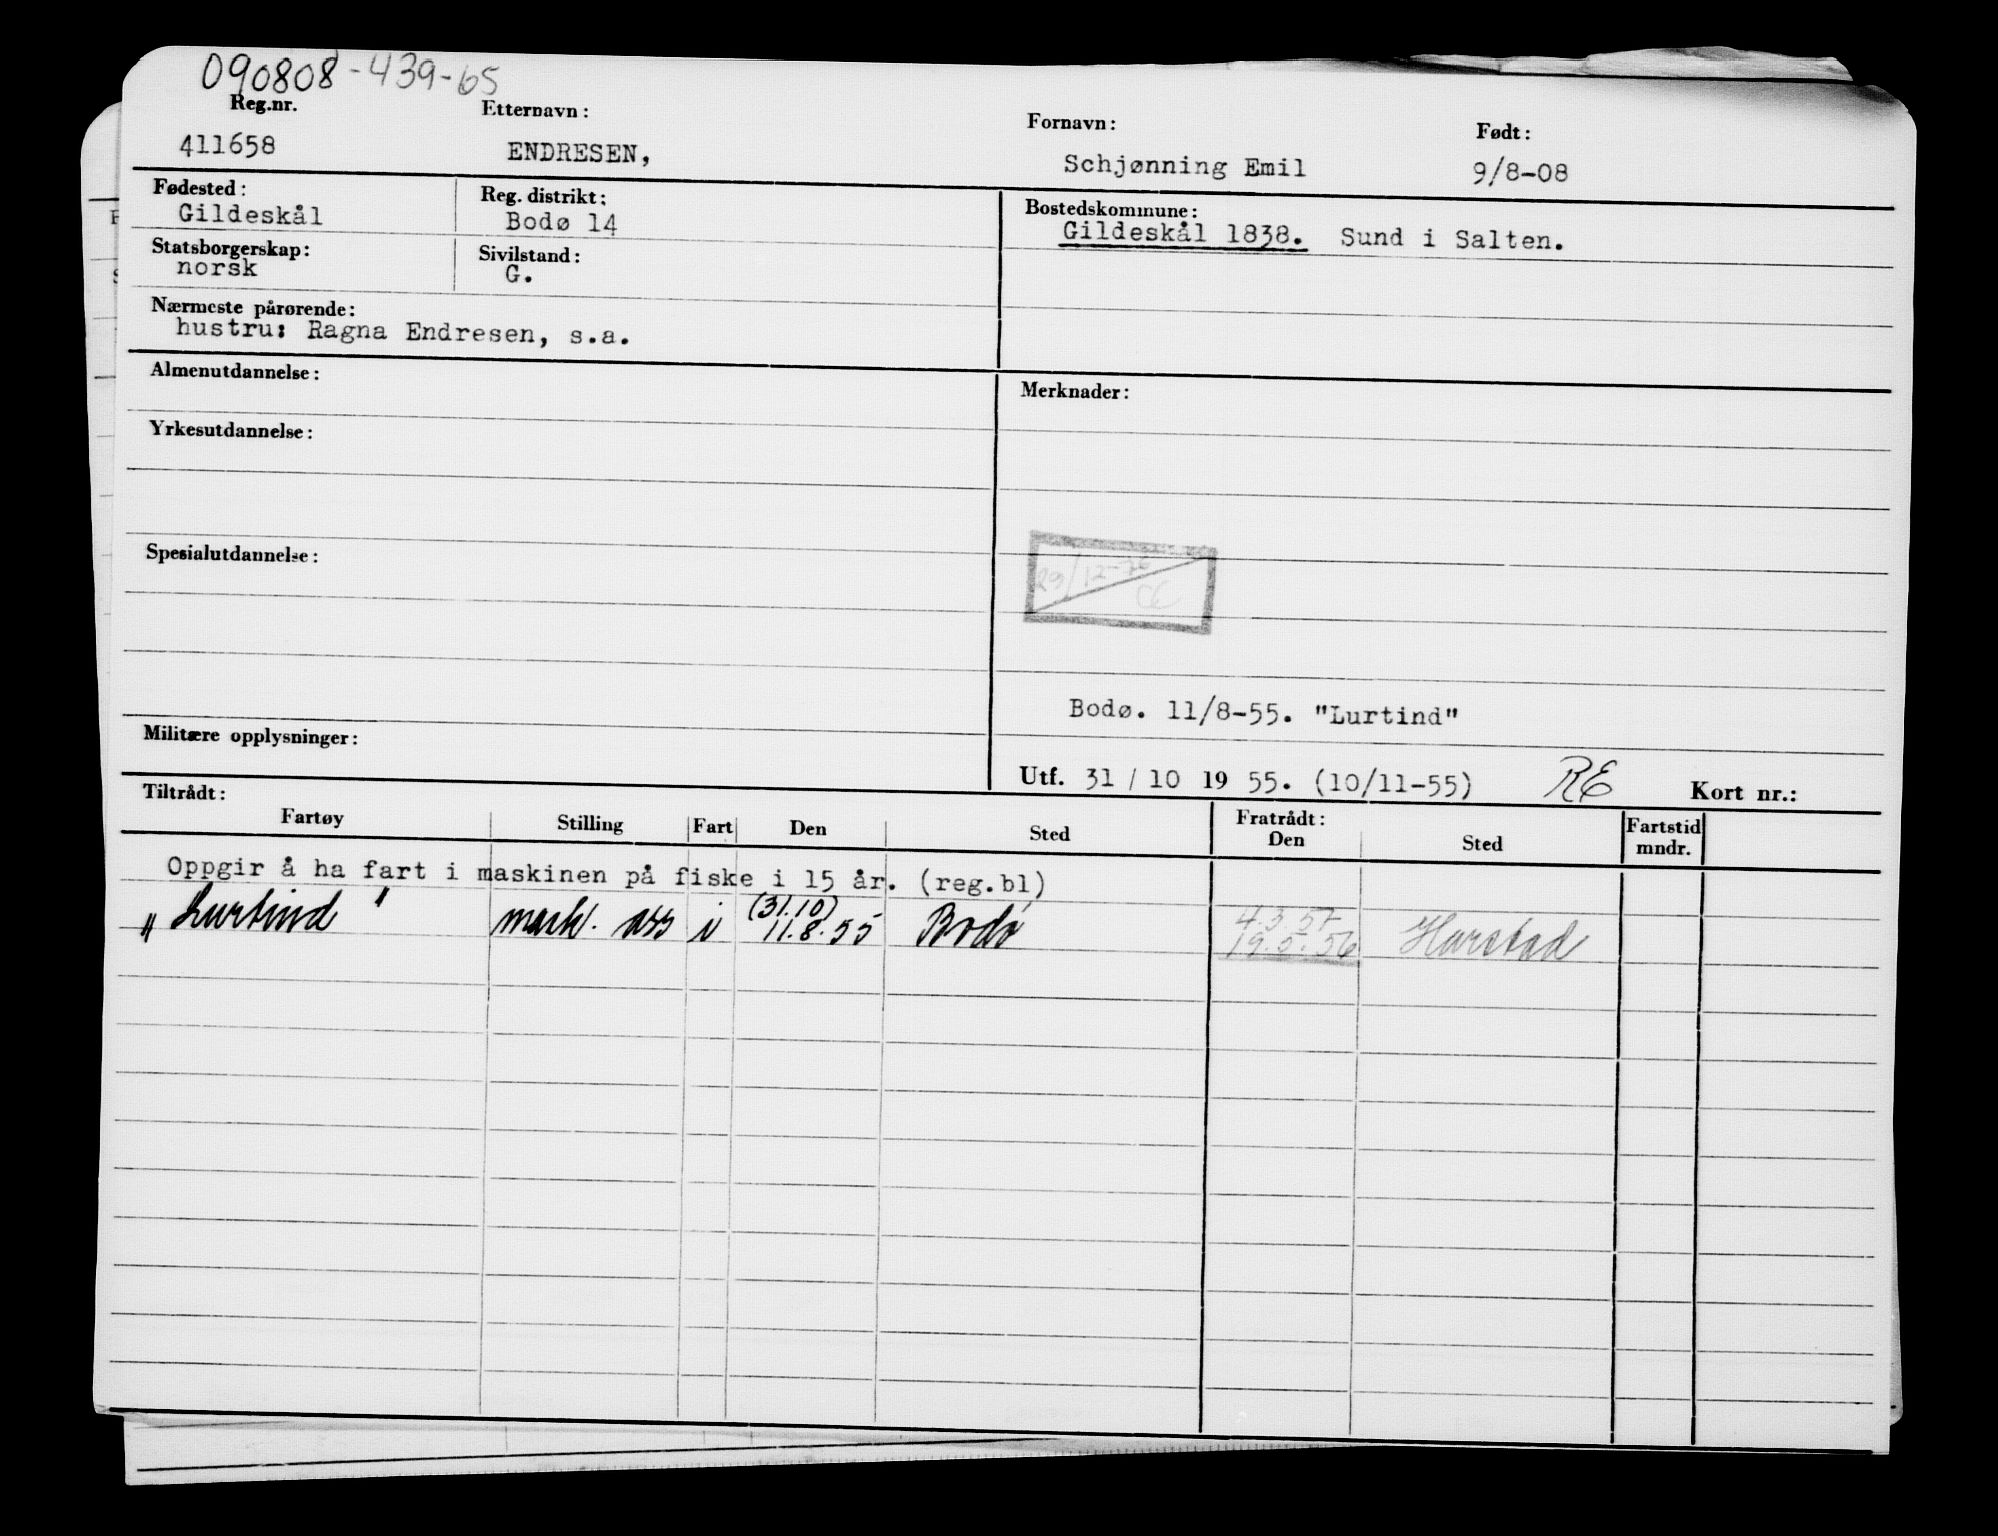 090808-439-65
Reg.nr. Etternavn: Fornavn: Født:
411658 ENDRESEN, Schjønning Emil 9/8-08
Fødested: Reg. distrikt: Bostedskommune:
Gildeskål Bodø 14 Gildeskål 1838. Sund i Salten.
Statsborgerskap: Sivilstand:
norsk G.
Nærmeste pårørende:
hustru: Ragna Endresen, s.a.
Almenutdannelse: Merknader:
Yrkesutdannelse:
Spesialutdannelse:
29/12-76
CE
Bodø. 11/8-55. "Lurtind"
Militære opplysninger:
Utf. 31 / 10 19 55. (10/11-55) RE Kort nr.:
Tiltrådt: Fratrådt:
Fartøy Stilling Fart Den Sted Den Sted Fartstid mndr.
Oppgir å ha fart i maskinen på fiske i 15 år. (reg.bl)
(31.10) 4.3.57
"Lurtind" mask. ass i 11.8.55 Bodø 19.5.56 Harstad